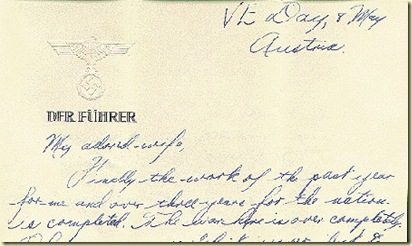 VE Day, 8 May
Austria.
DER FÜHRER
My adored wife,
Finally the work of the past year
for me and over three years for the nation
is completed. The war here is over completely.